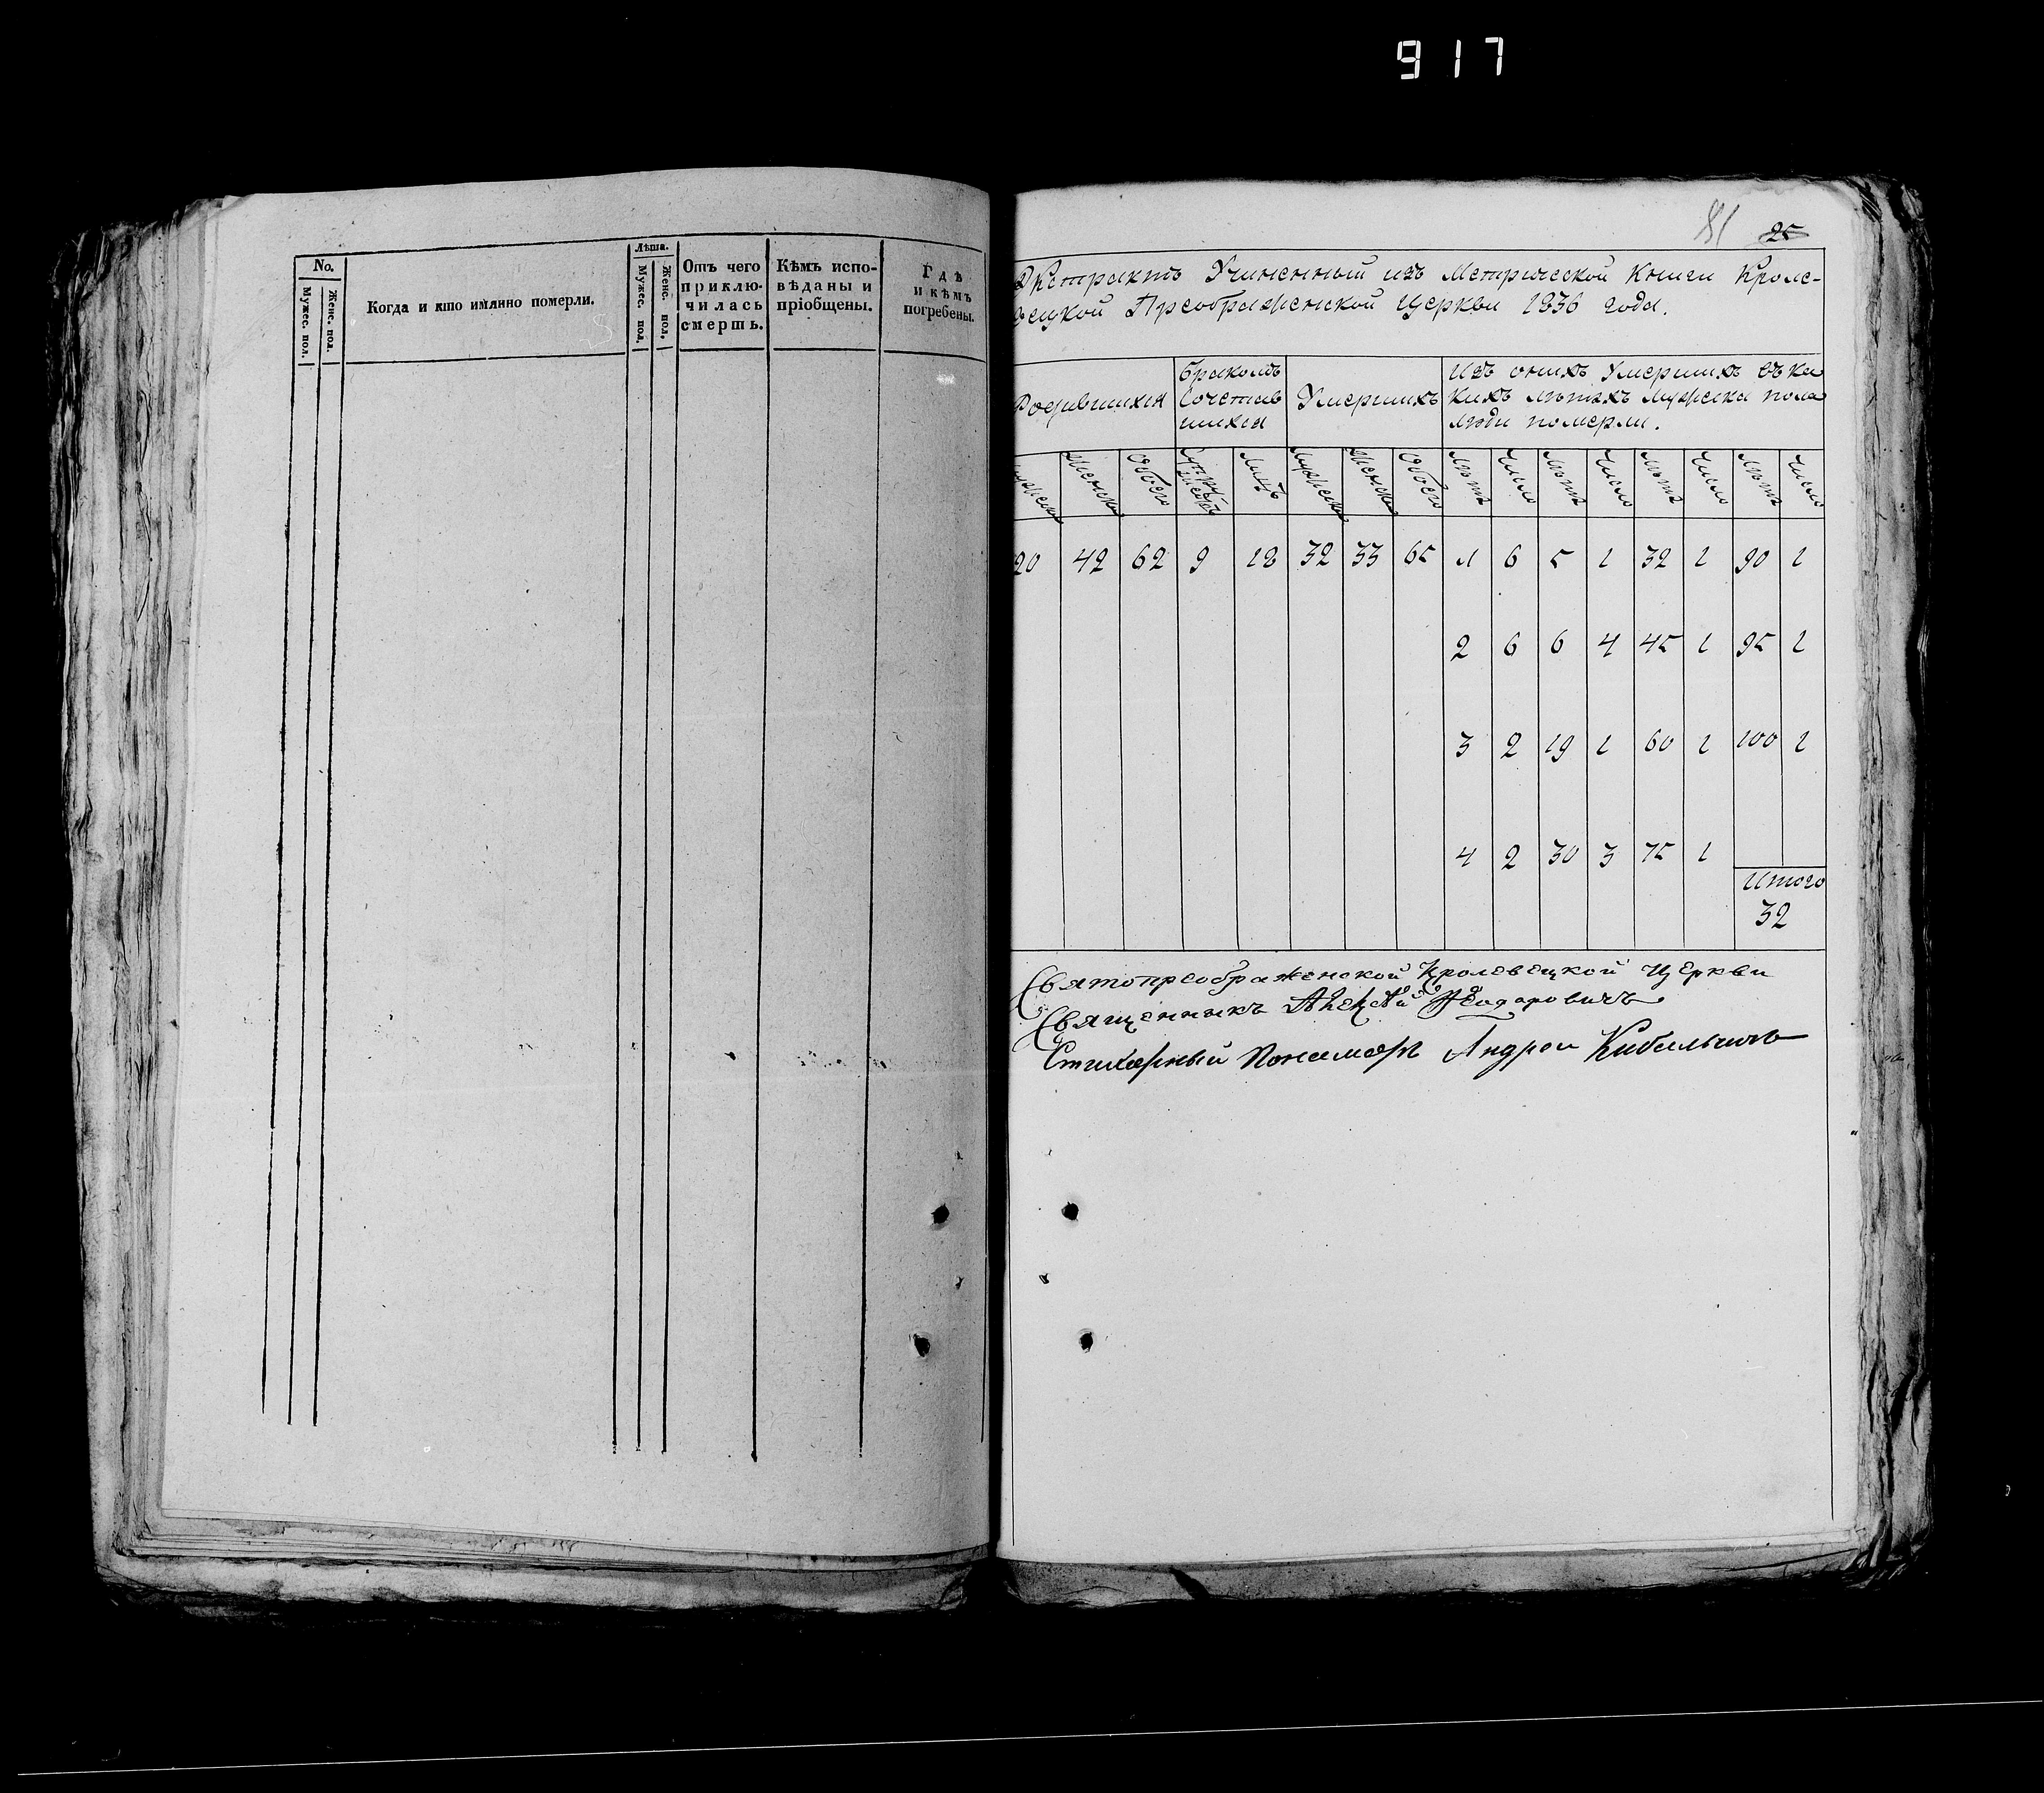 917
No.
Мужес. пол.
Женс. пол.
Когда и кто имянно померли.
Лѣта.
Мужес. пол.
Женс. пол.
Отъ чего
приклю-
чилась
смерть.
Кѣмъ испо-
вѣданы и
пріобщены.
Гдѣ
и кѣмъ
погребены.
81 25
Экстрактъ Учиненный изъ Метрической Книги Кроле-
вецкой Преображенской Церкви 1836 года.
Родившихся
Бракомъ
Сочетав
шихся
Умершихъ
Изъ оныхъ Умершихъ въ ка
кихъ лѣтахъ Мужеска пола
люди померли.
Мужеска Женска Обоего лицъ Мужеска Женска Обоего Лѣта Число Лѣта Число Лѣта Число Лѣта Число
20 42 62 9 18 32 33 65 1 6 5 1 32 1 90 1
2 6 6 4 45 1 95 1
3 2 19 1 60 1 100 1
4 2 30 3 75 1
Итого
32
Святопреображенской Кролевецкой Церкви
Священникъ Алексѣй Ѳеодоровичъ
Стихарный Пономарь Андреи Кибальчичъ